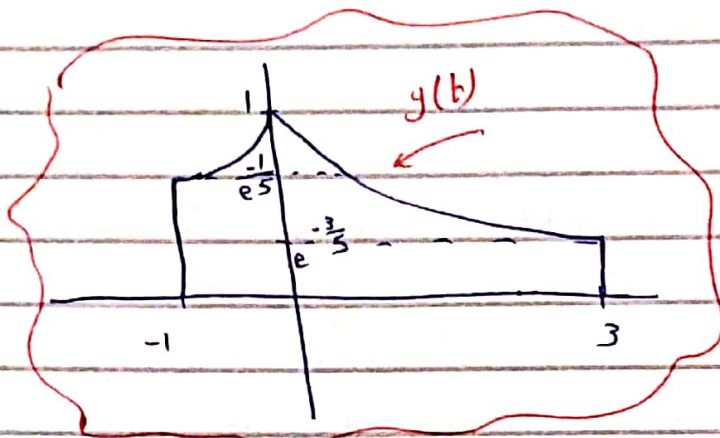 1
y(t)
e^{-1/5}
e^{-3/5}
-1
3